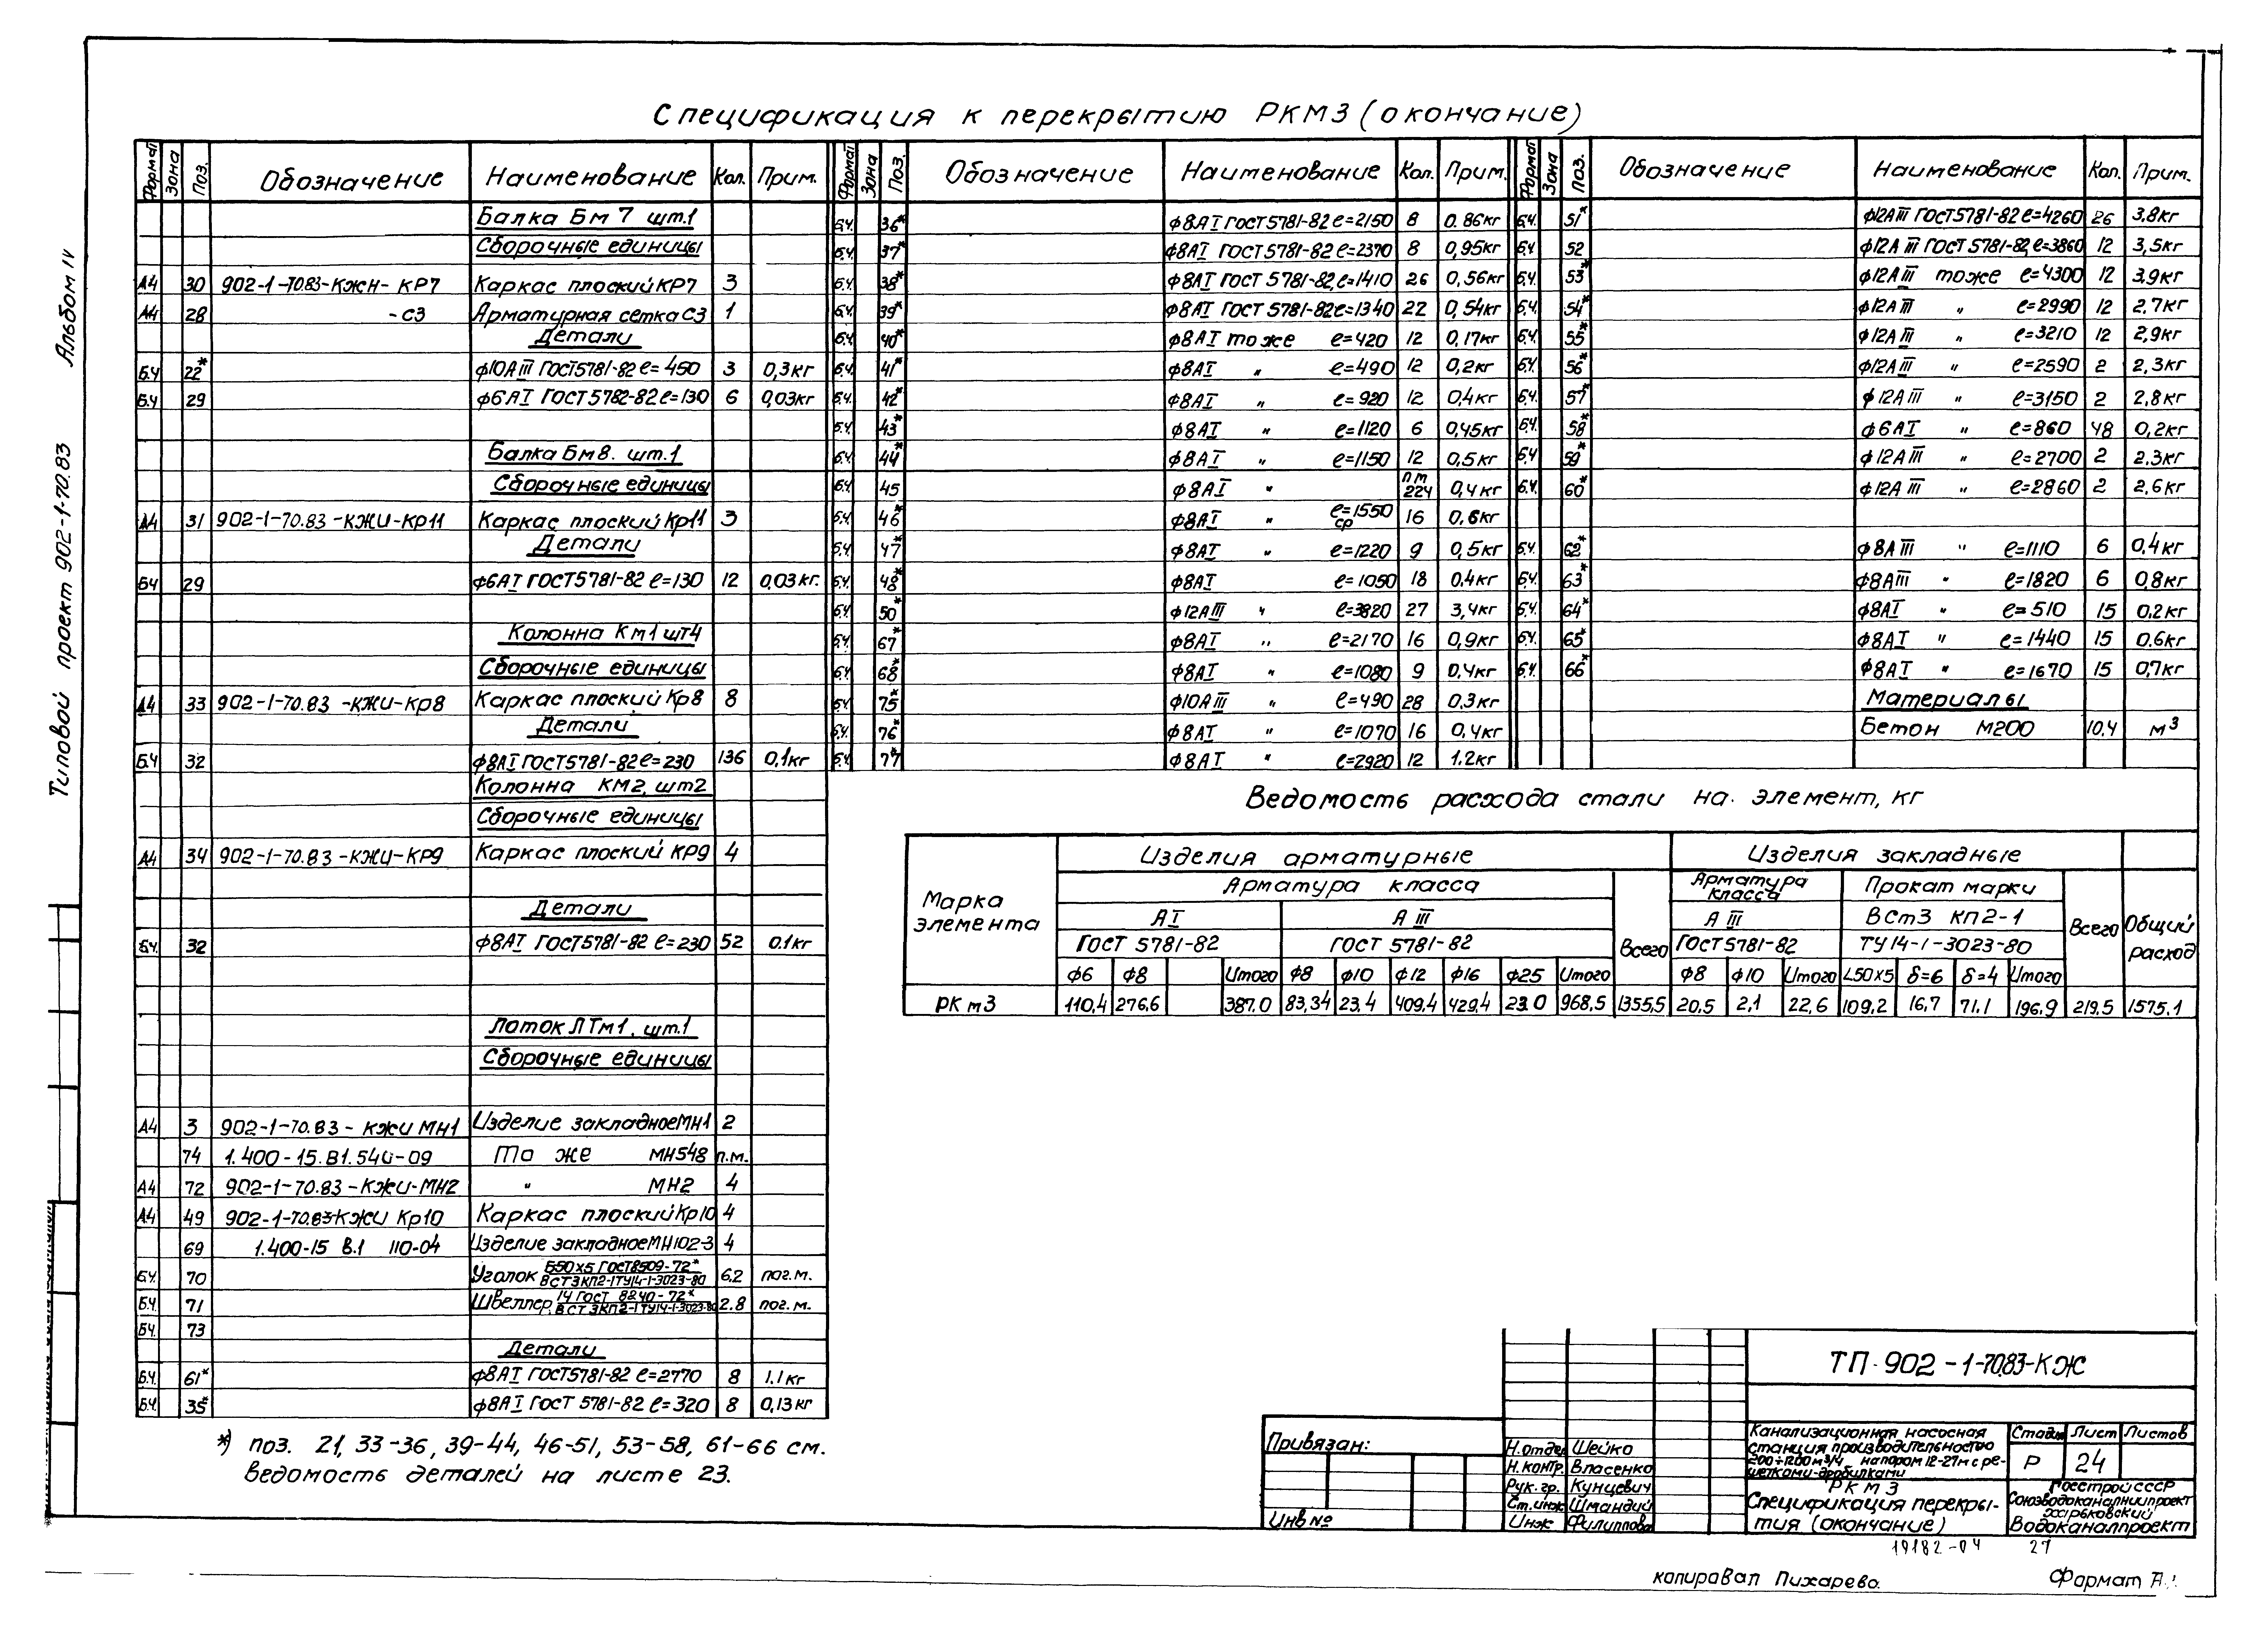 Спецификация к перекрытию РКМ3 (окончание)
Типовой проект 902-1-70.83 Альбом IV
Формат Зона Поз. Обозначение Наименование Кол. Прим.
Балка Бм 7 шт.1
Сборочные единицы
А4 30 902-1-70.83-КЖН- КР7 Каркас плоский КР7 3
А4 28 -С3 Арматурная сетка С3 1
Детали
Б.Ч 22* ф10АIII ГОСТ5781-82 ℓ=450 3 0,3кг
Б.Ч 29 ф6АI ГОСТ5782-82 ℓ=130 6 0,03кг
Балка Бм8. шт.1
Сборочные единицы
А4 31 902-1-70.83-КЖИ-КР11 Каркас плоский Кр11 3
Детали
БЧ 29 ф6АI ГОСТ5781-82 ℓ=130 12 0,03кг.
Колонна Км1 шт4
Сборочные единицы
А4 33 902-1-70.83-КЖИ-Кр8 Каркас плоский Кр8 8
Детали
Б.Ч 32 ф8АI ГОСТ5781-82 ℓ=230 136 0,1кг
Колонна КМ2, шт2
Сборочные единицы
А4 34 902-1-70.83-КЖИ-КР9 Каркас плоский КР9 4
Детали
Б.Ч. 32 ф8АI ГОСТ5781-82 ℓ=230 52 0.1кг
Лоток ЛТм1, шт.1
Сборочные единицы
А4 3 902-1-70.83-КЖИ МН1 Изделие закладное МН1 2
74 1.400-15.В1.540-09 То же МН548 п.м.
А4 72 902-1-70.83-КЖИ-МН2 " МН2 4
А4 49 902-1-70.83-КЖИ Кр10 Каркас плоский Кр10 4
69 1.400-15 В.1 110-04 Изделие закладное МН102-3 4
Б.Ч. 70 Уголок Б50х5 ГОСТ8509-72* / ВСТ3КП2-1ТУ14-1-3023-80 6.2 пог.м.
Б.Ч. 71 Швеллер 14 ГОСТ 8240-72* / ВСТ3КП2-1ТУ14-1-3023-80 2.8 пог.м.
БЧ. 73
Детали
Б.Ч. 61* ф8АI ГОСТ5781-82 ℓ=2770 8 1.1кг
Б.Ч. 35* ф8АI ГОСТ 5781-82 ℓ=320 8 0,13кг
*) поз. 21, 33-36, 39-44, 46-51, 53-58, 61-66 см.
ведомость деталей на листе 23.
Формат Зона Поз. Обозначение Наименование Кол. Прим.
Б.Ч. 36* ф8АI ГОСТ5781-82 ℓ=2150 8 0.86кг
Б.Ч. 37* ф8АI ГОСТ 5781-82 ℓ=2370 8 0,95кг
Б.Ч. 38* ф8АI ГОСТ 5781-82, ℓ=1410 26 0,56кг
Б.Ч. 39* ф8АI ГОСТ 5781-82 ℓ=1340 22 0,54кг
Б.Ч. 40* ф8АI тоже ℓ=420 12 0,17кг
Б.Ч. 41* ф8АI " ℓ=490 12 0,2кг
Б.Ч. 42* ф8АI " ℓ=920 12 0,4кг
Б.Ч. 43* ф8АI " ℓ=1120 6 0,45кг
Б.Ч. 44* ф8АI " ℓ=1150 12 0,5кг
Б.Ч. 45 ф8АI " пм 224 0,4кг
Б.Ч. 46* ф8АI " ℓ=1550 ср 16 0,6кг
Б.Ч. 47* ф8АI " ℓ=1220 9 0,5кг
Б.Ч. 48* ф8АI ℓ=1050 18 0.4кг
Б.Ч. 50* ф12АIII " ℓ=3820 27 3,4кг
Б.Ч. 67* ф8АI " ℓ=2170 16 0,9кг
Б.Ч. 68* ф8АI " ℓ=1080 9 0.4кг
Б.Ч. 75* ф10АIII " ℓ=490 28 0.3кг
Б.Ч. 76* ф8АI " ℓ=1070 16 0,4кг
Б.Ч. 77* ф8АI " ℓ=2920 12 1.2кг
Формат Зона Поз. Обозначение Наименование Кол. Прим.
Б.Ч. 51* ф12АIII ГОСТ5781-82 ℓ=4260 26 3,8кг
Б.Ч 52 ф12АIII ГОСТ5781-82, ℓ=3860 12 3,5кг
Б.Ч. 53* ф12АIII тоже ℓ=4300 12 3,9кг
Б.Ч. 54* ф12АIII " ℓ=2990 12 2.7кг
Б.Ч. 55* ф12АIII " ℓ=3210 12 2,9кг
Б.Ч. 56* ф12АIII " ℓ=2590 2 2,3кг
Б.Ч. 57* ф12АIII " ℓ=3150 2 2,8кг
Б.Ч. 58* ф6АI " ℓ=860 48 0,2кг
Б.Ч 59* ф12АIII " ℓ=2700 2 2.3кг
Б.Ч. 60* ф12АIII " ℓ=2860 2 2,6кг
Б.Ч. 62* ф8АIII " ℓ=1110 6 0,4кг
Б.Ч. 63* ф8АIII " ℓ=1820 6 0,8кг
Б.Ч. 64* ф8АI " ℓ=510 15 0.2кг
Б.Ч. 65* ф8АI " ℓ=1440 15 0.6кг
Б.Ч. 66* ф8АI " ℓ=1670 15 0,7кг
Материалы
Бетон М200 10,4 м³
Ведомость расхода стали на элемент, кг
Марка элемента Изделия арматурные Изделия закладные Общий расход
Арматура класса Всего Арматура класса Прокат марки Всего
АI А III А III ВСт3 КП2-1
ГОСТ 5781-82 ГОСТ 5781-82 ГОСТ5781-82 ТУ14-1-3023-80
ф6 ф8 Итого ф8 ф10 ф12 ф16 ф25 Итого ф8 ф10 Итого L50х5 δ=6 δ=4 Итого
РКм3 110,4 276,6 387.0 83,34 23.4 409.4 429,4 23.0 968,5 1355,5 20,5 2,1 22,6 109.2 16,7 71,1 196.9 219.5 1575.1
ТП-902-1-70.83-КЖ
Привязан:
Инв №
Н.отдел Шейко
Н.контр. Власенко
Рук.гр. Кунцевич
Ст.инж Шмандий
Инж Филиппова
Канализационная насосная
станция производительностью
200÷1200м³/ч напором 12-27м с ре-
шетками-дробилками
Стадия Лист Листов
Р 24
РКМ3
Спецификация перекры-
тия (окончание)
Госстрой СССР
Союзводоканалниипроект
Харьковский
Водоканалпроект
19182-04 27
копировал Пихарево.
Формат